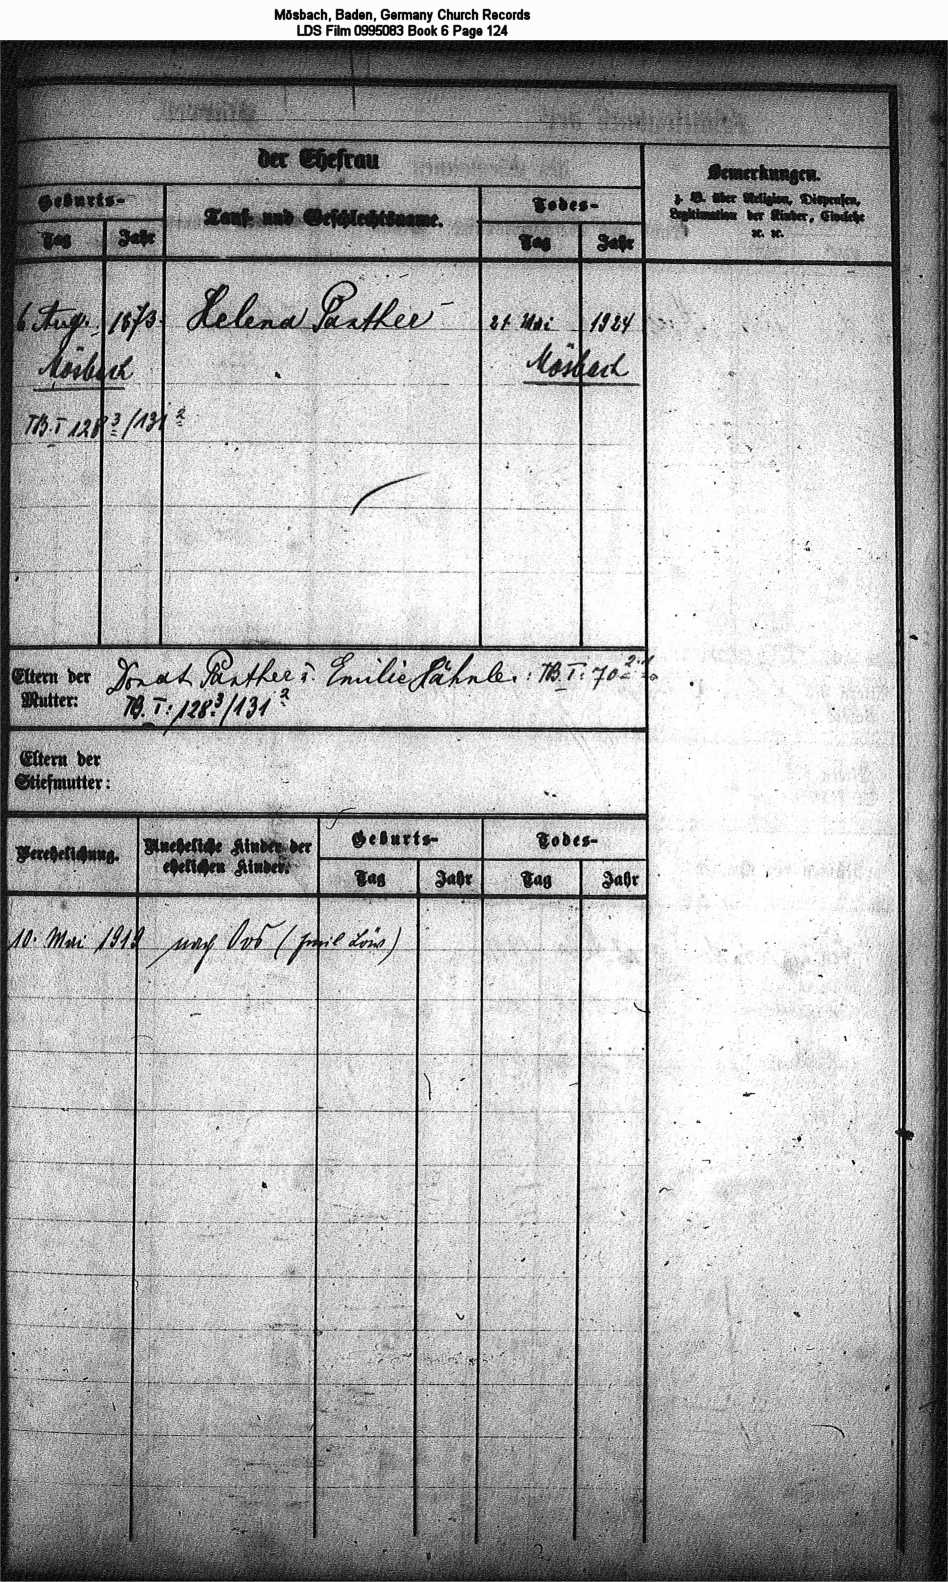 Mösbach, Baden, Germany Church Records
LDS Film 0995083 Book 6 Page 124
der Ehefrau
Bemerkungen.
z. B. über Religion, Dispensen,
Legitimation der Kinder, Civilehe
ꝛc. ꝛc.
Geburts-
Tauf- und Geschlechtsname.
Todes-
Tag
Jahr
Tag
Jahr
6. Aug. 1873. Helena Panther 21 Mai 1924
Mösbach
Mösbach
TB. I 128 3/131 2
Eltern der
Mutter:
Donat Panther u. Emilie Hähnle: TB. I: 70
TB. I: 128 3/131 2
Eltern der
Stiefmutter:
Verehelichung.
Uneheliche Kinder der
ehelichen Kinder.
Geburts-
Todes-
Tag
Jahr
Tag
Jahr
10. Mai 1919 nach Oos (Emil Löw)